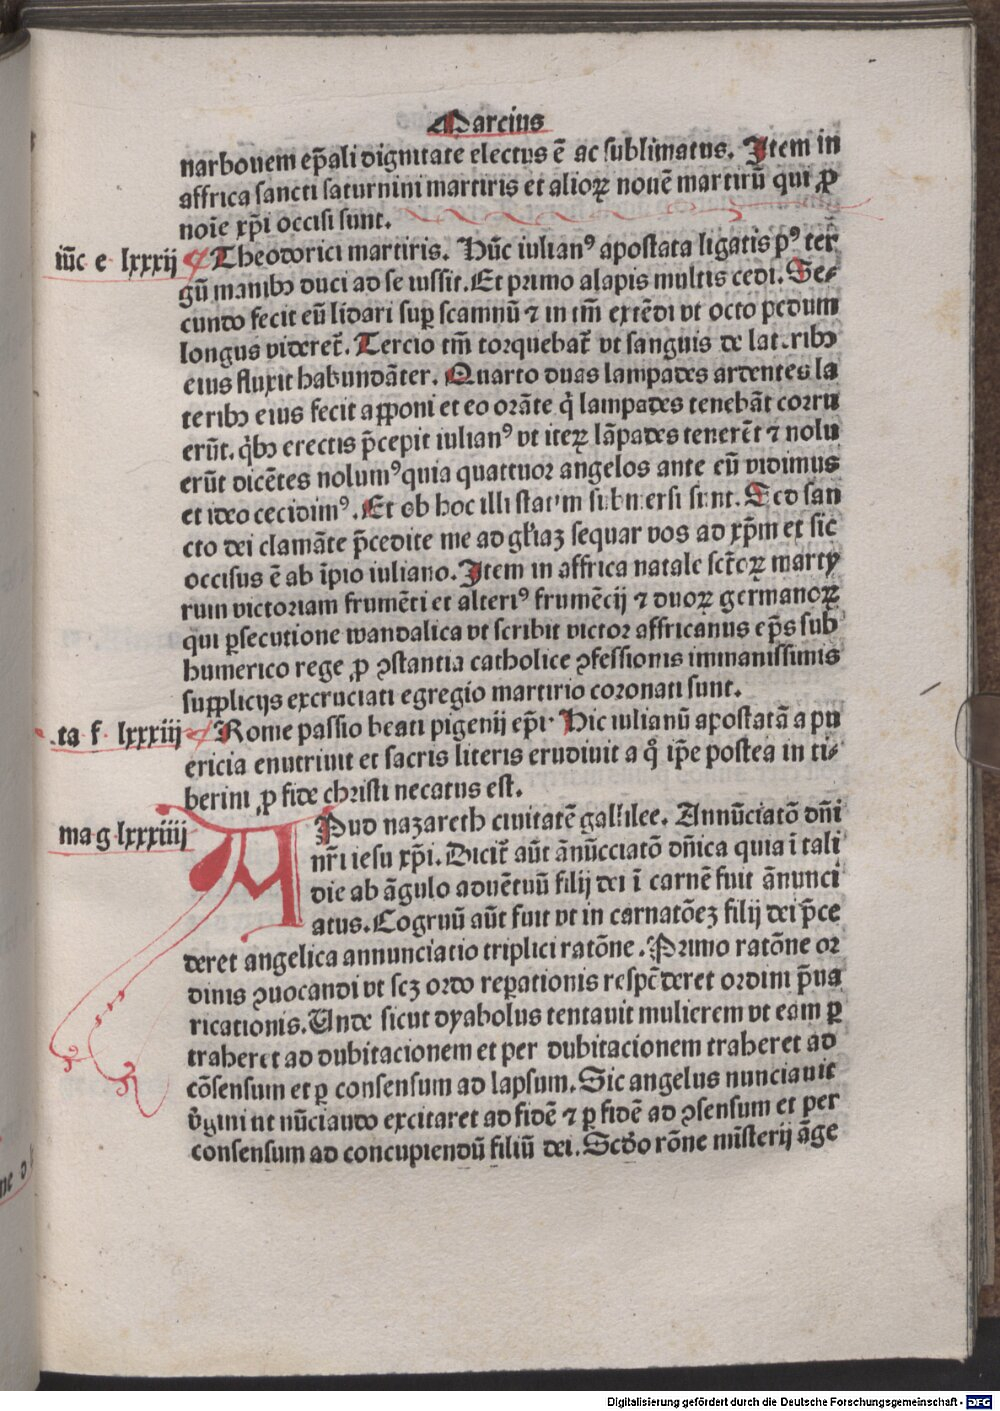 Marcius
narbonem ep̄ali dignitate electus ē ac sublimatus. Item in
affrica sancti saturnini martiris et alioꝝ nouē martirū qui ꝓ
noīe xp̄i occisi sunt.
iūc e lxxxij Theodorici martiris. Hūc iulianꝰ apostata ligatis pꝰ ter
gū manibꝫ duci ad se iussit. Et primo alapis multis cedi. Se⸗
cundo fecit eū ligari suꝑ scamnū ⁊ in tm̄ extēdi vt octo pedum
longus videret̄. Tercio tm̄ torquebat̄ vt sanguis de lateribꝫ
eius fluxit habundāter. Quarto duas lampades ardentes la
teribꝫ eius fecit apponi et eo orāte q̇ lampades tenebāt corru
erūt. q̇bꝫ erectis p̄cepit iulianꝰ vt iteꝝ lāpades tenerēt ⁊ nolu
erūt dicētes nolumꝰ quia quattuor angelos ante eū vidimus
et ideo cecidimꝰ. Et ob hoc illi statim submersi sunt. Sed san
cto dei clamāte p̄cedite me ad gl̄iaꝫ sequar vos ad xp̄m et sic
occisus ē ab īpio iuliano. Item in affrica natale sct̄oꝝ marty
rum victoriam frumēti et alteriꝰ frumēcij ⁊ duoꝝ germanoꝝ
qui ꝑsecutione wandalica vt scribit victor affricanus ep̄s sub
humerico rege ꝓ ꝯstantia catholice ꝯfessionis immanissimis
supplicijs excruciati egregio martirio coronati sunt.
ta f lxxxiij Rome passio beati pigenij ep̄i. Hic iulianū apostatā a pu
ericia enutriuit et sacris literis erudiuit a q̇ ip̄e postea in ti⸗
berini ꝓ fide christi necatus est.
ma g lxxxiiij APud nazareth ciuitatē gallilee. Annūciatō dn̄i
nr̄i iesu xp̄i. Dicit̄ aūt ānūcciatō dn̄ica quia ī tali
die ab āgulo aduētuū filij dei ī carnē fuit ānunci
atus. Cogruū aūt fuit vt in carnatōeꝫ filij dei p̄ce
deret angelica annunciatio triplici ratōne. Primo ratōne or
dinis ꝯuocandi vt scꝫ ordo reparationis respōderet ordini p̄ua
ricationis. Unde sicut dyabolus tentauit mulierem vt eam ꝑ
traheret ad dubitacionem et per dubitacionem traheret ad
cōsensum et ꝑ consensum ad lapsum. Sic angelus nunciauit
v̇gini ut nūciando excitaret ad fidē ⁊ ꝑ fidē ad ꝯsensum et per
consensum ad concupiendū filiū dei. Scd̄o rōne mīsterij āge
Digitalisierung gefördert durch die Deutsche Forschungsgemeinschaft - DFG